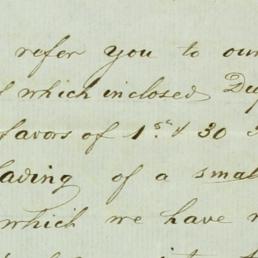 refer you to our
which inclosed Du
favors of 1st & 30
lading of a small
which we have